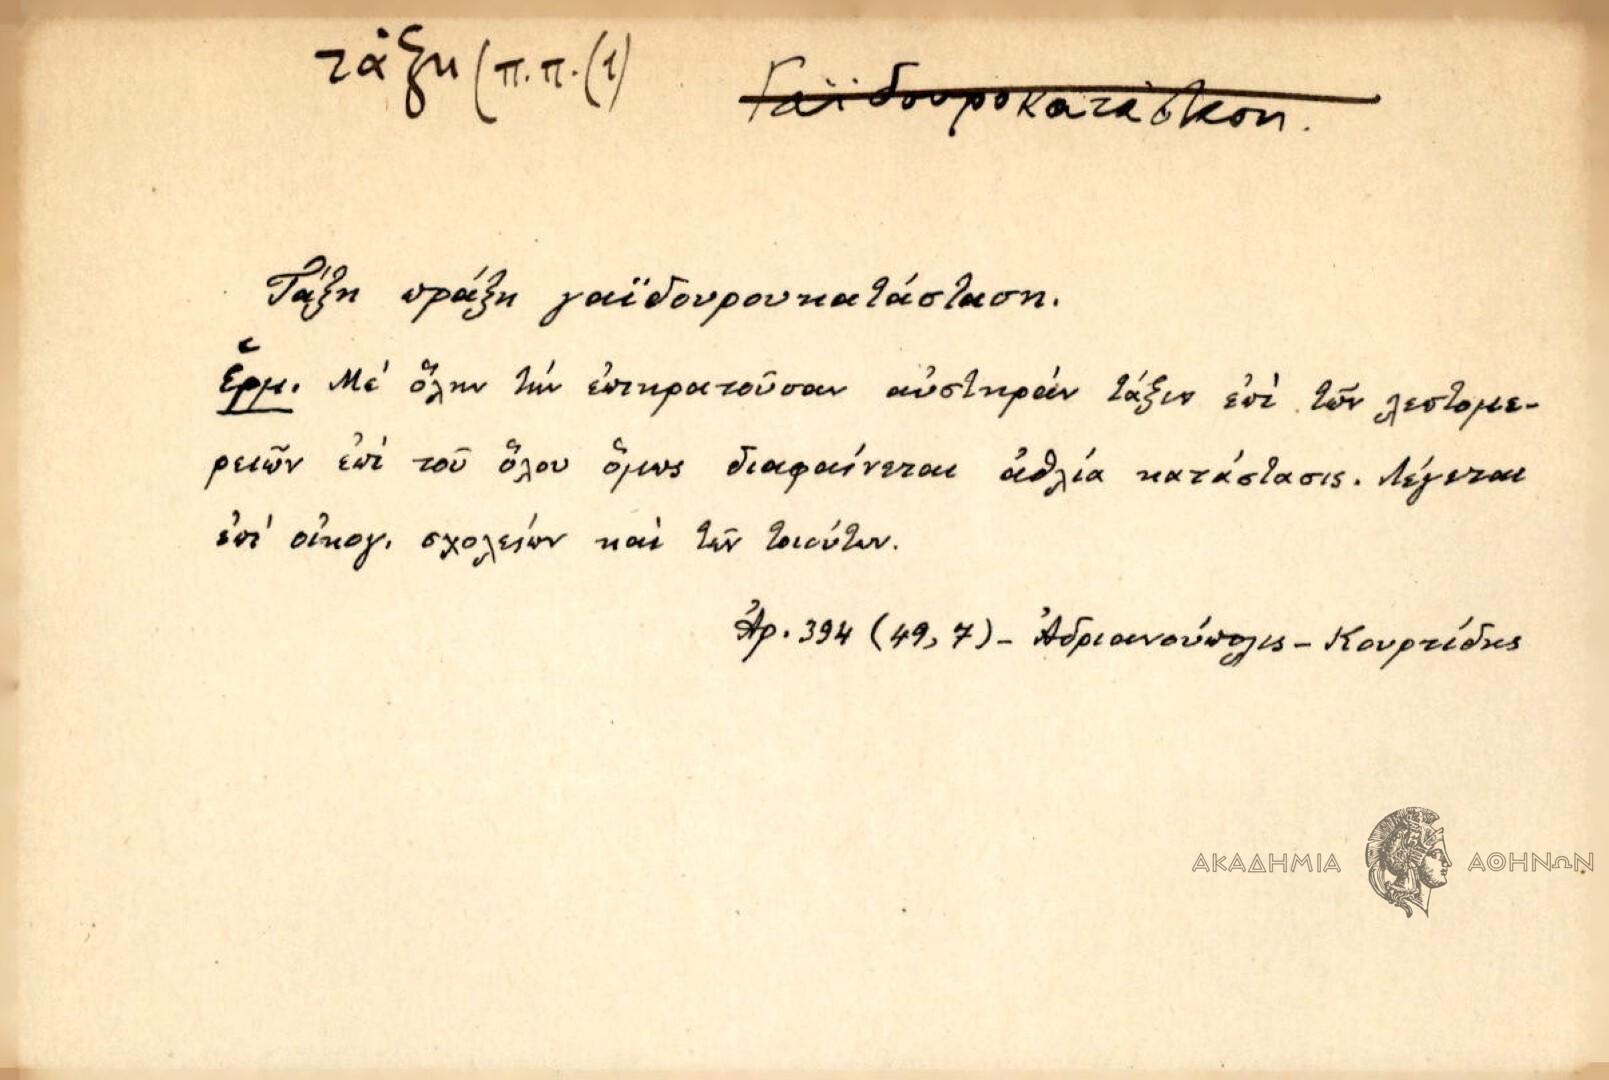 τάξη (π.π. (1)
Γαϊδουροκατάσταση.
Τάξη πράξη γαϊδουρουκατάσταση.
Ἑρμ. Μέ ὅλην τήν ἐπικρατοῦσαν αὐστηράν τάξιν ἐπί τῶν λεπτομε-
ρειῶν ἐπί τοῦ ὅλου ὅμως διαφαίνεται ἀθλία κατάστασις. Λέγεται
ἐπί οἰκογ. σχολείων καί τῶν τοιούτων.
Ἀρ. 394 (49, 7) - Ἀδριανούπολις - Κουρτίδης
ΑΚΑΔΗΜΙΑ ΑΘΗΝΩΝ